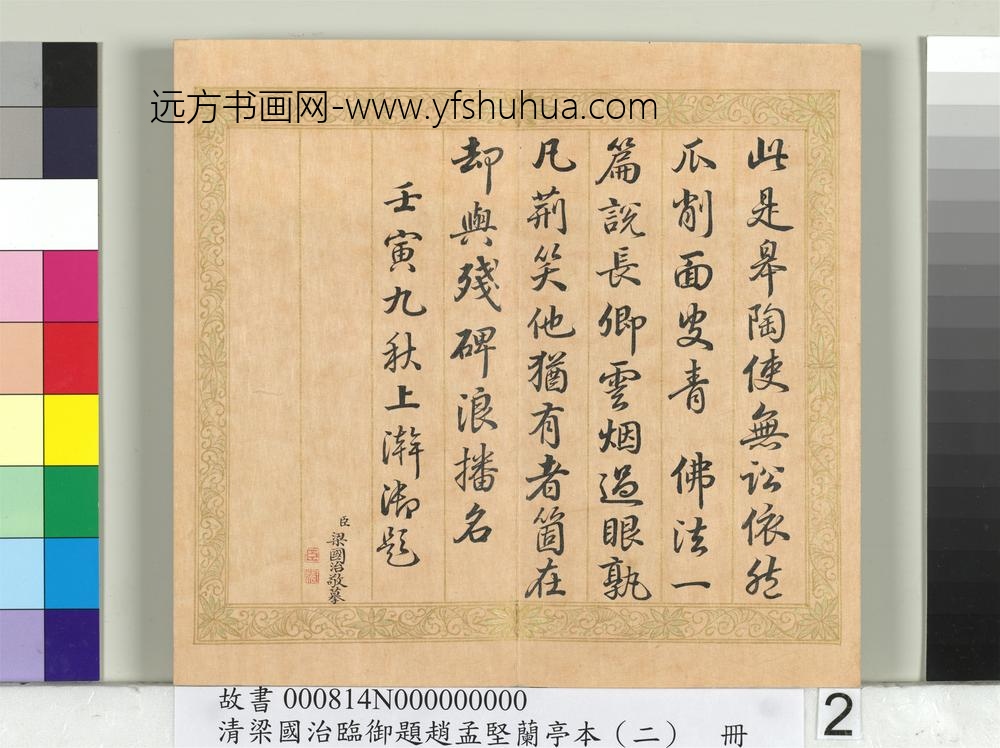 远方书画网-www.yfshuhua.com
此是皋陶使無訟依然
瓜削面叟青 佛法一
篇說長卿雲烟過眼孰
凡荊笑他猶有者箇在
却與殘碑浪播名
壬寅九秋上澣御題
臣梁國治敬摹
故書 000814N000000000
清梁國治臨御題趙孟堅蘭亭本（二） 冊
2